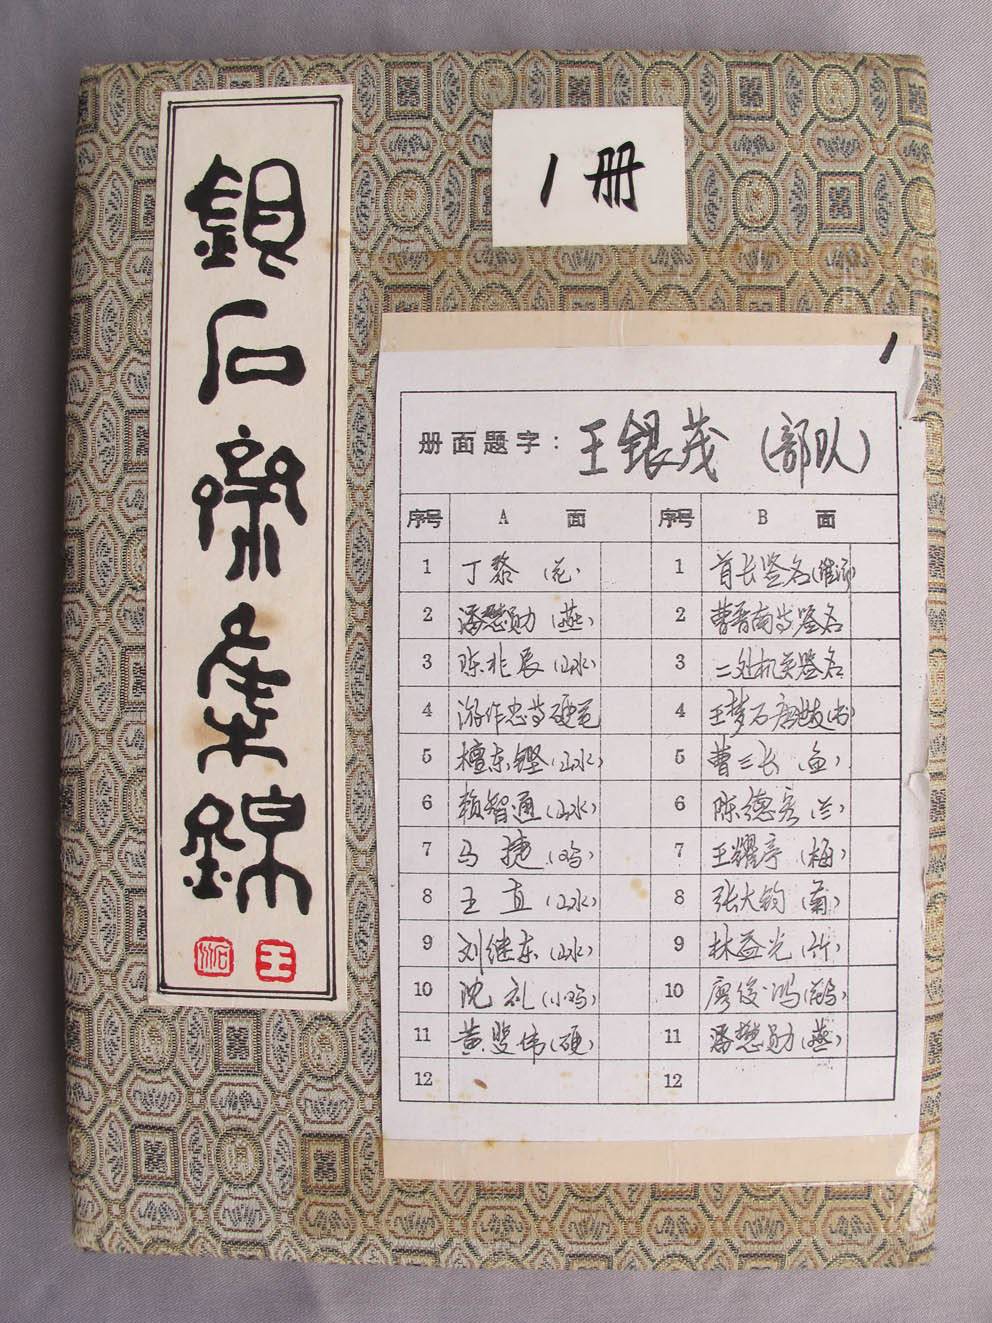 銀石齋集錦
王
石
1册
1
册面题字：王银茂（部队）
序号 A 面 序号 B 面
1 丁黎（花） 1 首长签名
2 潘懋勋（燕） 2 曹晋南等签名
3 陈北辰（山水） 3 二处机关签名
4 游作忠等硬笔 4 王梦石
5 檀东铿（山水） 5 曹三长（鱼）
6 赖智通（山水） 6 陈德亮（兰）
7 马捷（鸡） 7 王耀亭（梅）
8 王直（山水） 8 张大钧（菊）
9 刘继东（山水） 9 林益光（竹）
10 沈礼（小鸡） 10 廖俊鸿
11 黄斐伟（硬） 11 潘懋勋（燕）
12 12